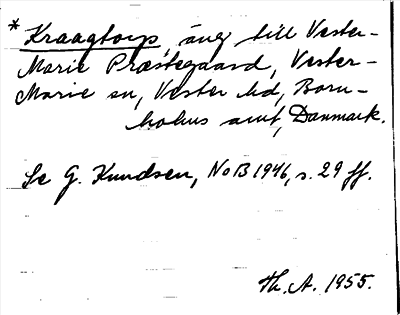 * Kraagtorp, äng till Vester-
Marie Præstegaard, Vester-
Marie sn, Vester hd, Born-
holms amt, Danmark.
Se G. Knudsen, NoB 1946, s. 29 ff.
Th. A. 1955.